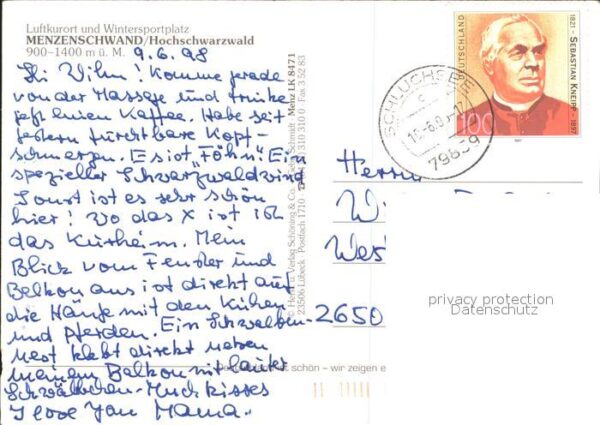 Luftkurort und Wintersportplatz
MENZENSCHWAND/Hochschwarzwald
900–1400 m ü. M. 9.6.98
Hi Wilm! Komme gerade
von der Massage und trinke
jetzt einen Kaffee. Habe seit
gestern furchtbare Kopf-
schmerzen. Es ist "Föhn"! Ein
spezieller Schwarzwaldwind
Sonst ist es sehr schön
hier! Wo das X ist ist
das Kurheim. Mein
Blick vom Fenster und
Balkon aus ist direkt auf
die Hänge mit den Kühen
und Pferden. Ein Schwalben-
nest klebt direkt neben
meinem Balkon mit lauter
Schwälbchen. Much kisses
I love You Mama.
Schöning & Co. + Gebrüder Schmidt
23506 Lübeck · Postfach 1710
Menz LK 8471
DEUTSCHLAND
100
1821 - SEBASTIAN KNEIPP - 1897
1997
SCHLUCHSEE
c
79859
Herrn
Wi
Wes
2650
privacy protection
Datenschutz
schön – wir zeigen e